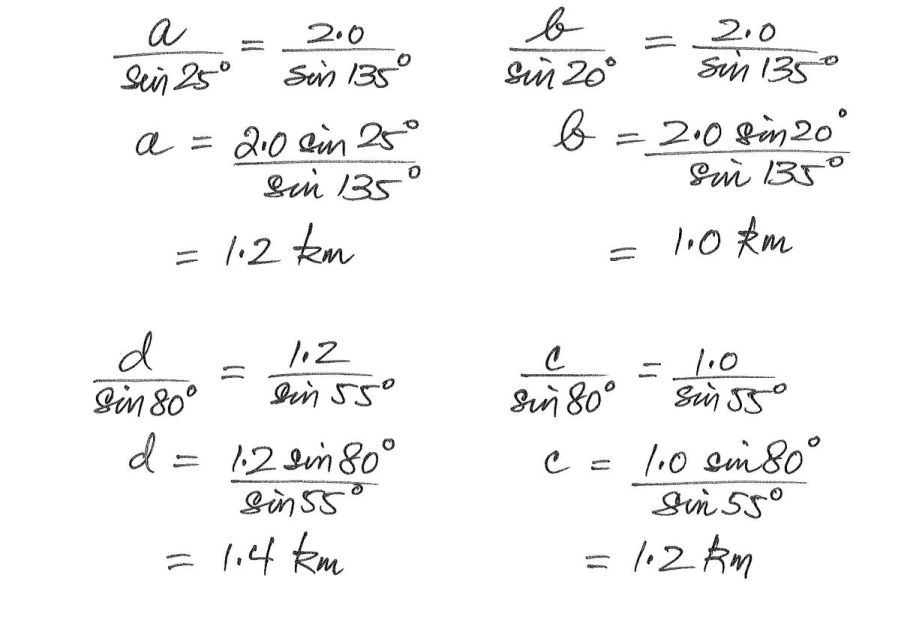 a/sin 25° = 2.0/sin 135°
a = 2.0 sin 25°/sin 135°
= 1.2 km
b/sin 20° = 2.0/sin 135°
b = 2.0 sin 20°/sin 135°
= 1.0 km
d/sin 80° = 1.2/sin 55°
d = 1.2 sin 80°/sin 55°
= 1.4 km
c/sin 80° = 1.0/sin 55°
c = 1.0 sin 80°/sin 55°
= 1.2 km